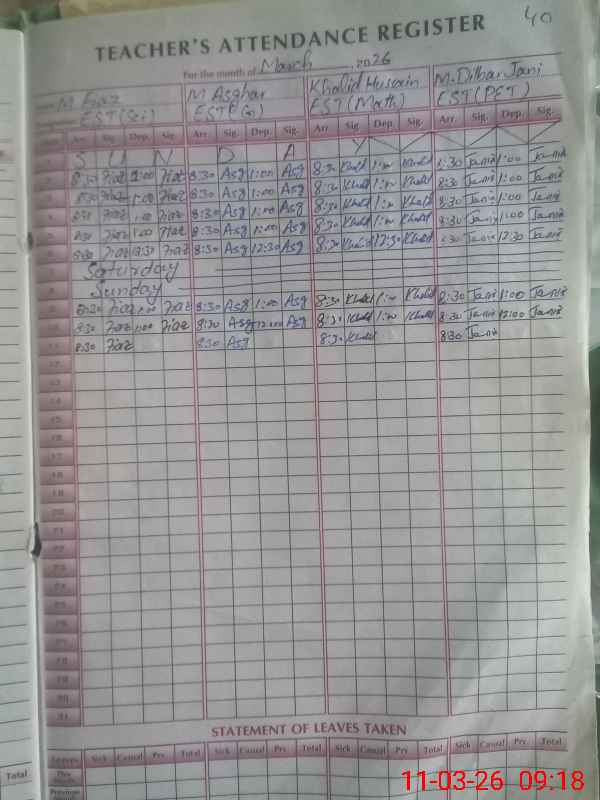 40
TEACHER'S ATTENDANCE REGISTER
For the month of March, 2026
M. Fiaz M Asghar Khalid Hussain M. Dilbar Jani
EST (Sci) EST (Math) EST (PET)
Arr. Sig. Dep. Sig. Arr. Sig. Dep. Sig. Arr. Sig. Dep. Sig. Arr. Sig. Dep. Sig.
S U N D A Y
8:30 Fiaz 1:00 Fiaz 8:30 Asg 1:00 Asg 8:30 Khalid 1:00 Khalid 8:30 Janis 1:00 Janis
8:30 Fiaz 1:00 Fiaz 8:30 Asg 1:00 Asg 8:30 Khalid 1:00 Khalid 8:30 Janis 1:00 Janis
8:30 Fiaz 1:00 Fiaz 8:30 Asg 1:00 Asg 8:30 Khalid 1:00 Khalid 8:30 Janis 1:00 Janis
8:30 Fiaz 1:00 Fiaz 8:30 Asg 1:00 Asg 8:30 Khalid 1:00 Khalid 8:30 Janis 1:00 Janis
8:30 Fiaz 12:30 Fiaz 8:30 Asg 12:30 Asg 8:30 Khalid 12:30 Khalid 8:30 Janis 12:30 Janis
Saturday
Sunday
8:30 Fiaz 1:00 Fiaz 8:30 Asg 1:00 Asg 8:30 Khalid 1:00 Khalid 8:30 Janis 1:00 Janis
8:30 Fiaz 1:00 Fiaz 8:30 Asg Asg 8:30 Khalid 1:00 Khalid 8:30 Janis Janis
8:30 Fiaz 8:30 Asg 8:30 Khalid 8:30 Janis
12
13
14
15
16
17
18
19
20
21
22
23
24
25
26
27
28
29
30
31
STATEMENT OF LEAVES TAKEN
Leaves Sick Casual Prv. Total Sick Casual Prv. Total Sick Casual Prv. Total Sick Casual Prv. Total
Total This Month
Previous
11-03-26 09:18